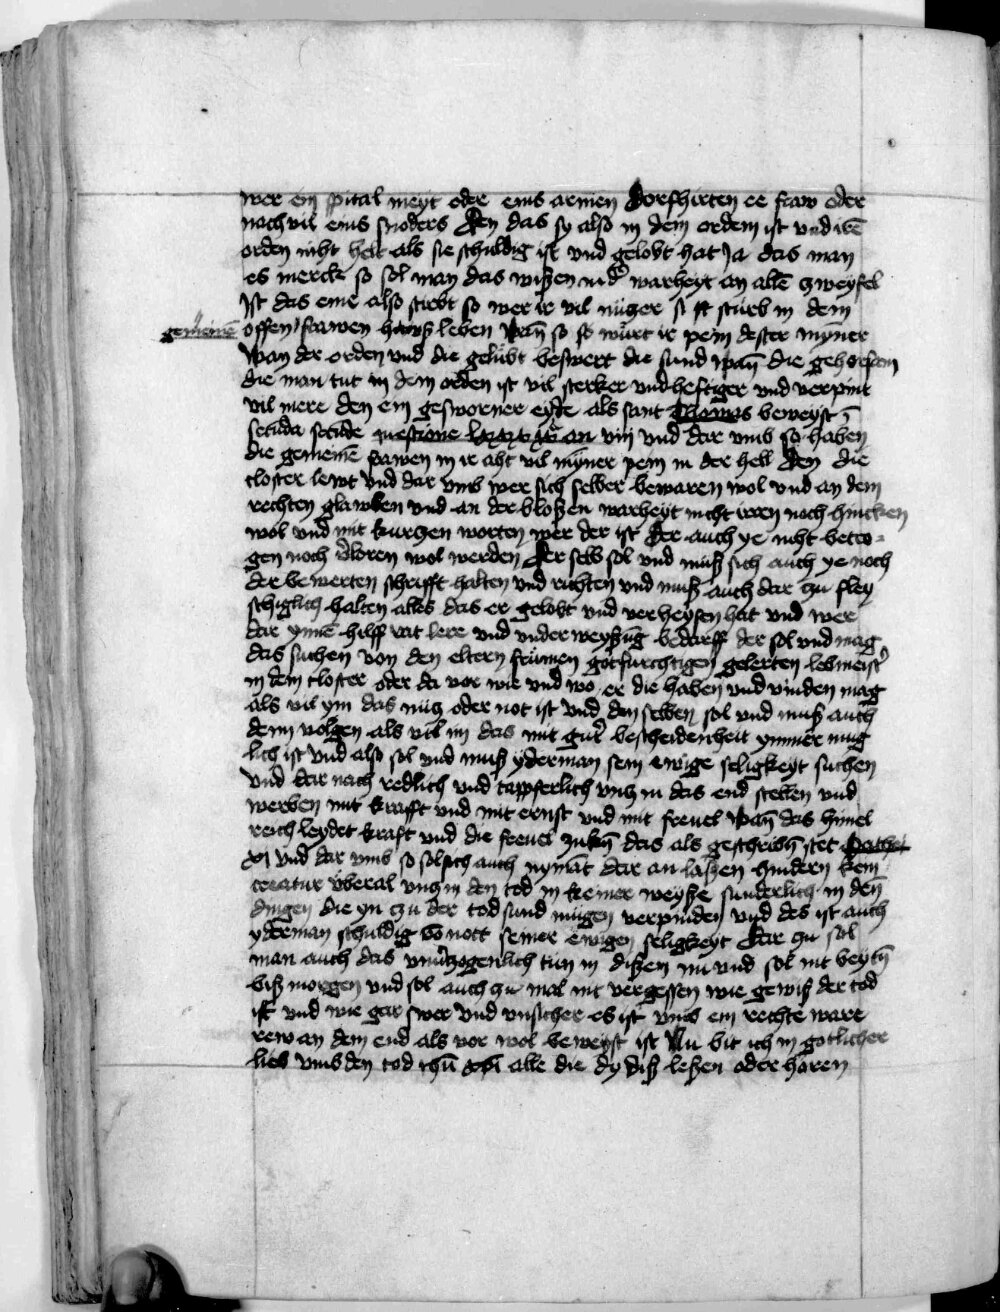 wer ein spital meyt oder eins armen dorfhirten ee fraw oder
noch vil eins snoders den das sy also in dem ordem ist vnd irē
orden niht helt als sie schuldig ist vnd gelobt hat Ja das man
es merck so sol man das wißen in dͤ warheyt an allē zweyfel
Ist das eine also stirbt so wer ir vil nüczer si stürb in dem
gemeinē
offen frawen hawß leben wan̄ so würt ir pein dester myner
wan der orden vnd die gelübt beswert die sund wan̄ die gehorsam
die man tut in dem orden ist vil sterker vnd heftiger vnd verpint
vil mere den ein gesworner eyde als sant Thomas beweyst
secūda secūde questione viij vnd dar vmb so haben
die gemeinē frawen in ir aht vil myner pein in der hell den die
closter lewt vnd dar vmb wer sich selber bewaren wol vnd an dem
rechten glawben vnd an der bloßen warheyt nicht irren noch hincken
wol vnd mit kurczen worten wer der ist der auch ye niht betro-
gen noch v̓loren wol werden der selb sol vnd muß sich auch ye noch
der bewerten schrifft halten vnd richten vnd muß auch dar zu fley
schiglich halten alles das er gelobt vnd verheysen hat vnd wer
dar ynnē hilff rat lere vnd vnderweyßūg bedarff der sol vnd mag
das suchen von den eltern frümen gotfurchtigen gelerten lebmeistͤ
in dem closter oder da vor wie vnd wo er die haben vnd vinden mag
als vil ym das nucz oder not ist vnd den selben sol vnd muß auch
denn volgen als vil im das mit gutͤ bescheidenheit ymmer mug
lich ist vnd also sol vnd muß yderman sein ewige seligkeyt suchen
vnd dar nach redlich vnd tappferlich vncz in das end stellen vnd
werben mit krafft vnd mit ernst vnd mit frevel wan̄ das himel
reich leydet kraft vnd die frevel zukē das als geschribē stet Mathei
xi vnd dar vmb so sol sich auch nymāt dar an laßen hindern kein
creatur vberal vncz in den tod in keiner weyße sunderlich in den
dingen die yn zu der tod sund mügen verpinden vnd des ist auch
yderman schuldig vō nott seiner ewigen seligkeyt dar zu sol
man auch das vnv̓zogenlich tun in dißen nu vnd sol nit beytē
biß morgen vnd sol auch zu mal nit vergessen wie gewiß der tod
ist vnd wie gar swer vnd vnsicher es ist vmb ein rechte ware
rew an dem end als vor wol beweyst ist Nu bit ich in gotlicher
lieb vmb den tod ihū xp̄i alle die dy diß leßen oder horen